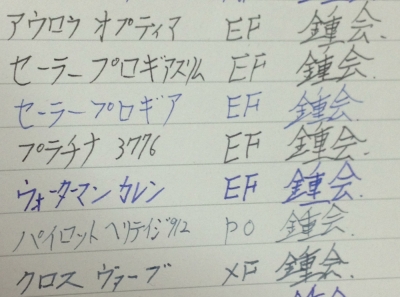 アウロウ オプティマ EF 鍾会.
セーラー プロギアスリム EF 鍾会.
セーラー プロギア EF 鍾会.
プラチナ 3776 EF 鍾会.
ウォーターマン カレン EF 鍾会.
パイロット ヘリテイジ912 PO 鍾会.
クロス ヴァーブ XF 鍾会.